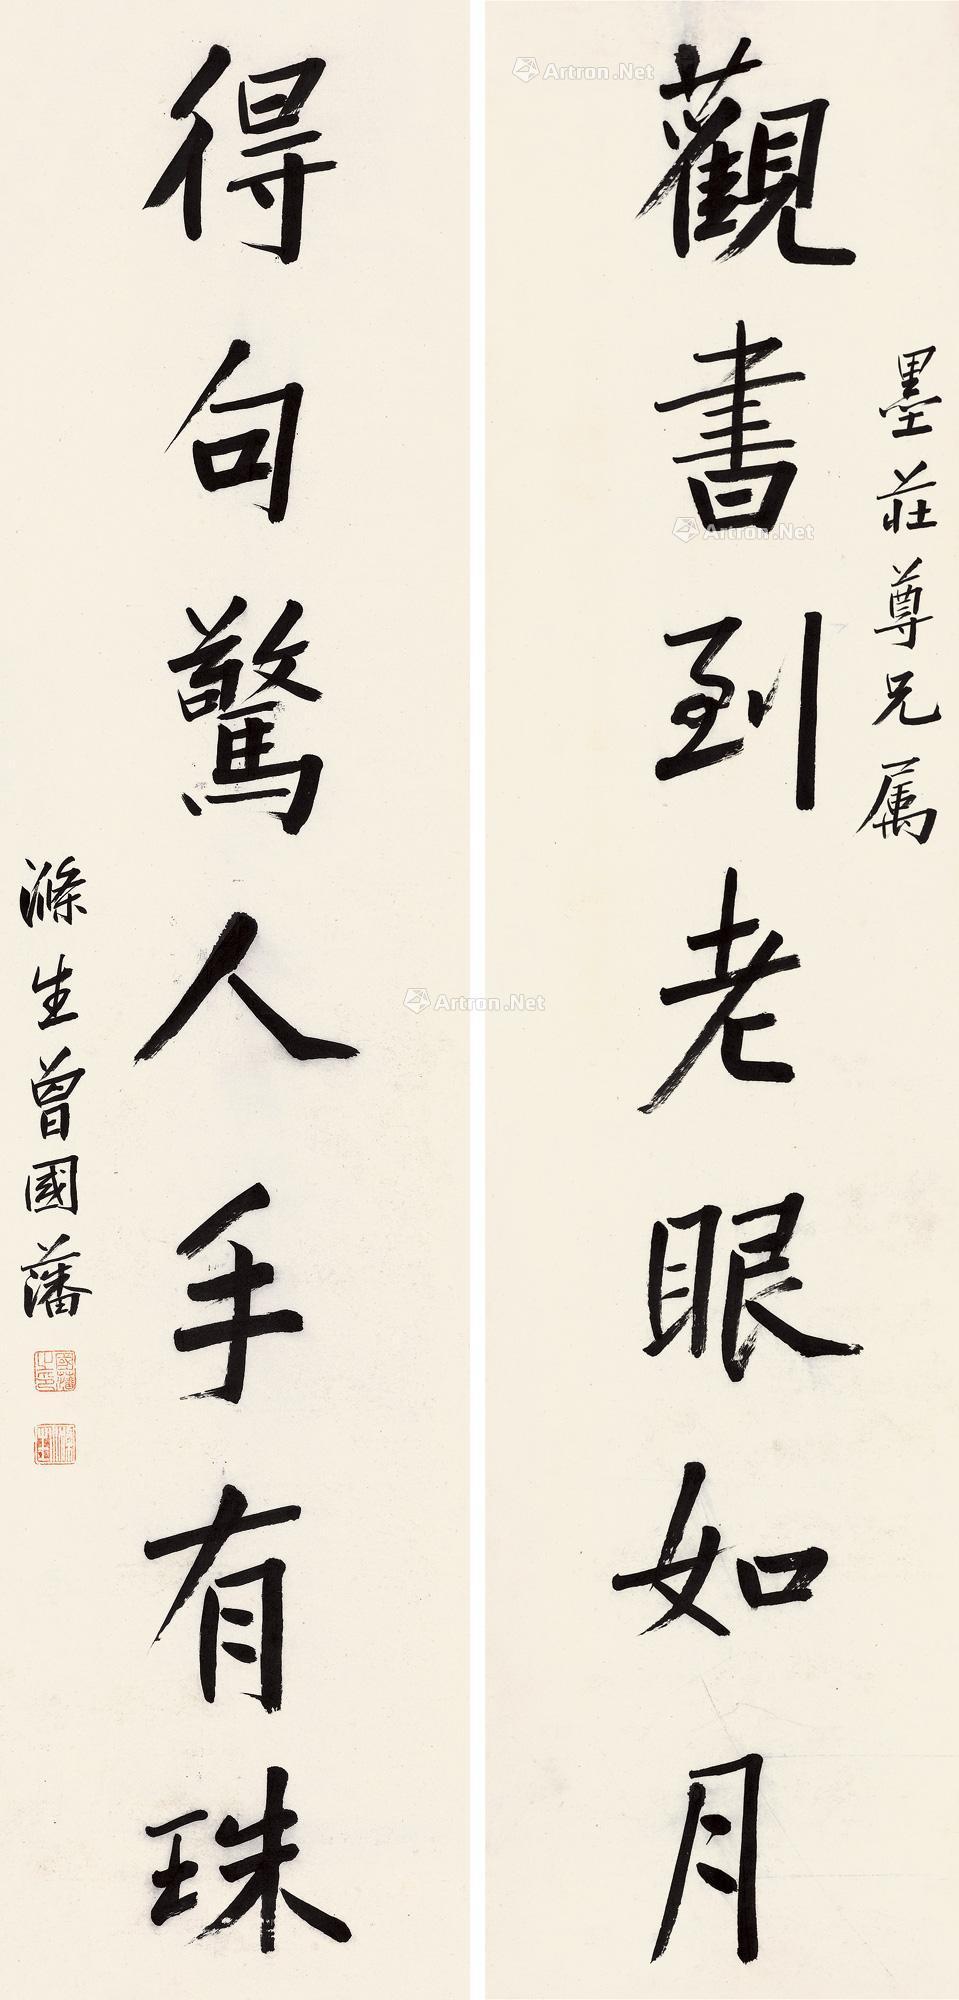 觀書到老眼如月
墨莊尊兄属
得句驚人手有珠
滌生曾國藩
Artron.Net
Artron.Net
Artron.Net